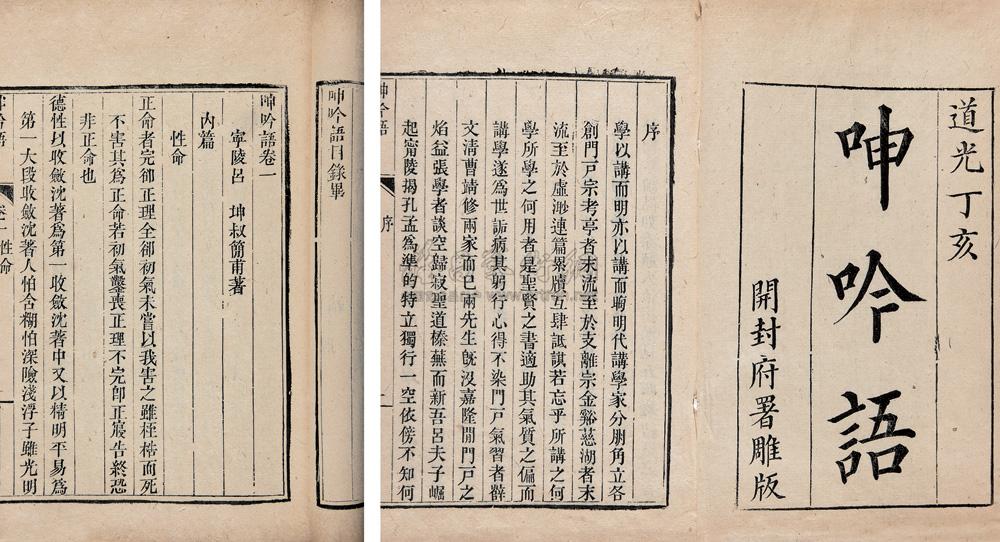 道光丁亥
呻吟語
開封府署雕版
序
學以講而明亦以講而晦明代講學家分朋角立各
創門戸宗考亭者末流至於支離宗金谿慈湖者末
流至於虛渺連篇累牘互肆詆諆若忘乎所講之何
學所學之何用者是聖賢之書適助其氣質之偏而
講學遂爲世詬病其躬行心得不染門戸氣習者薛
文清曹靖修兩家而已兩先生旣沒嘉隆閒門戸之
焰益張學者談空歸寂聖道榛蕪而新吾呂夫子崛
起甯陵揭孔孟爲準的特立獨行一空依傍不知何
呻吟語
序
呻吟語目錄畢
呻吟語卷一
寧陵呂 坤叔簡甫著
內篇
性命
正命者完卻正理全卻初氣未嘗以我害之雖桎梏而死
不害其爲正命若初氣鑿喪正理不完卽正寢告終恐
非正命也
德性以收斂沈著爲第一收斂沈著中又以精明平易爲
第一大段收斂沈著人怕含糊怕深險淺浮子雖光明
呻吟語
卷一 性命